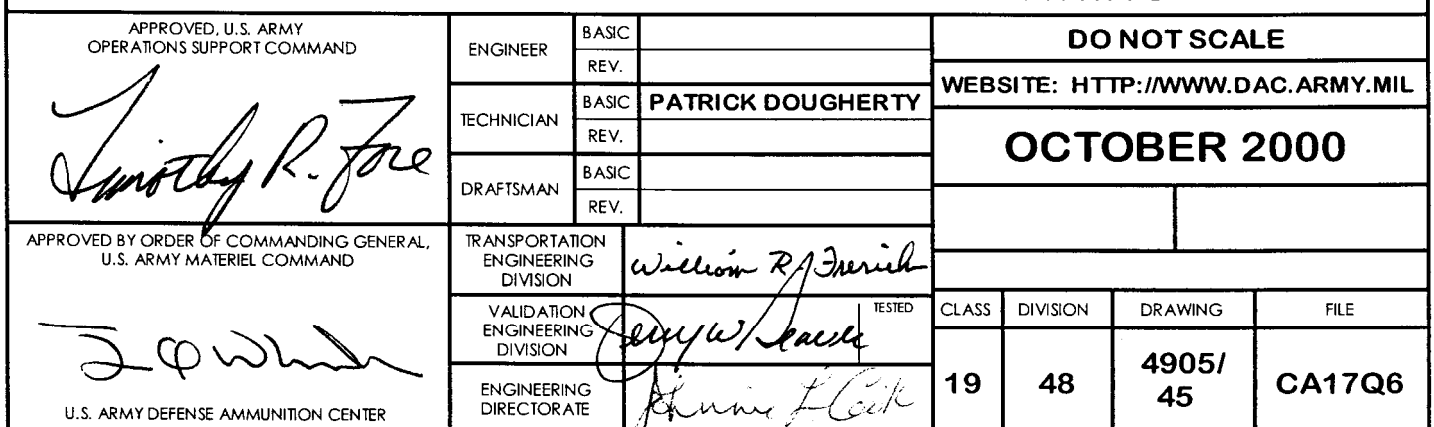 APPROVED, U.S. ARMY
OPERATIONS SUPPORT COMMAND
Timothy R. Fore
APPROVED BY ORDER OF COMMANDING GENERAL,
U.S. ARMY MATERIEL COMMAND
U.S. ARMY DEFENSE AMMUNITION CENTER
ENGINEER
BASIC
REV.
TECHNICIAN
BASIC
PATRICK DOUGHERTY
REV.
DRAFTSMAN
BASIC
REV.
TRANSPORTATION
ENGINEERING
DIVISION
William R
VALIDATION
ENGINEERING
DIVISION
Jerry W
TESTED
ENGINEERING
DIRECTORATE
DO NOT SCALE
WEBSITE: HTTP://WWW.DAC.ARMY.MIL
OCTOBER 2000
CLASS
DIVISION
DRAWING
FILE
19
48
4905/
45
CA17Q6